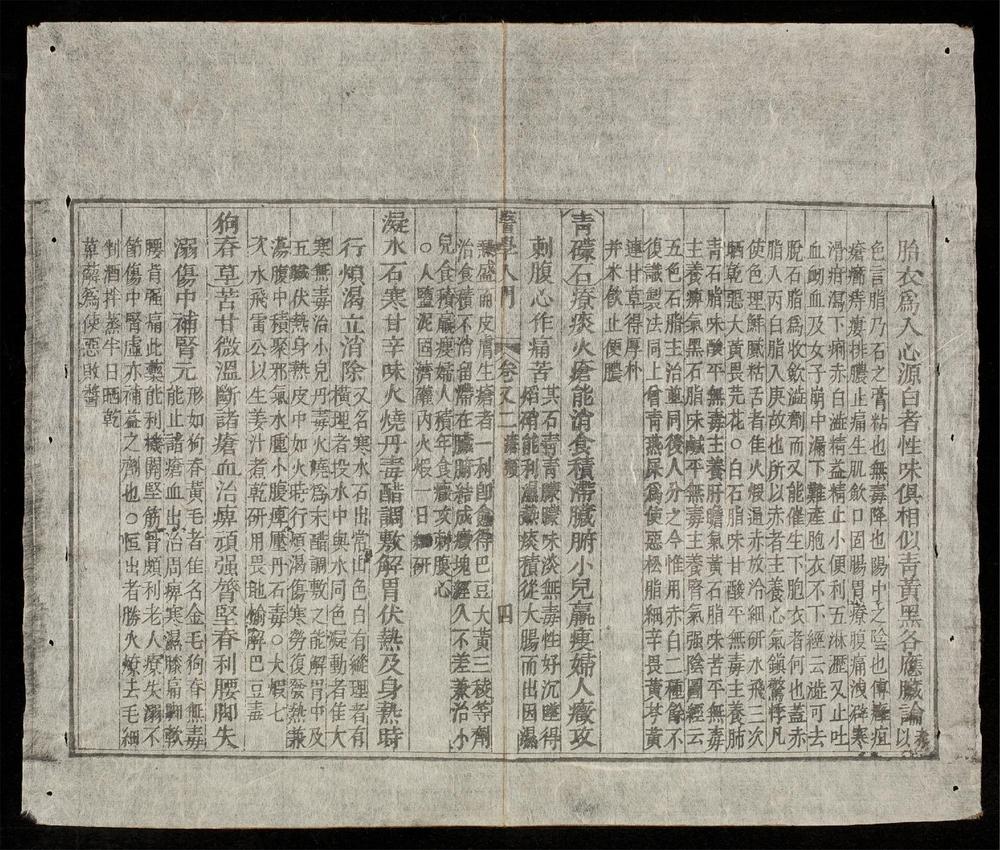 胎衣爲入心源白者性味俱相似青黃黑各應臟論
色言脂乃石之膏粘也無毒降也陽中之陰也傅癰疽
瘡痛痔瘻排膿止痛生肌飲口固腸胃療腹痛洩澼寒
滑痢瀉下痢赤白澁精益精止小便利五淋瀝又止吐
血衂血及女子崩中漏下難產胞衣不下經云澁可去
脫石脂爲收斂澁劑而又能催生下胞衣者何也蓋赤
脂入丙白脂入庚故也所以赤者主養心氣鎭驚悸凡
使色理鮮膩粘舌者佳火煆通赤放冷細研水飛三次
晒乾惡大黃畏芫花○白石脂味甘酸平無毒主養肺
青石脂味酸平無毒主養肝膽氣黃石脂味苦平無毒
主養脾氣黑石脂味鹹平無毒主養腎氣強陰圖經云
五色石脂主治並同後人分之今惟用赤白二種餘不
復識製法同上曾青燕屎爲使惡松脂細辛畏黃芩黃
連甘草得厚朴
并米飲止便膿
青礞石療痰火瘡能消食積滯臟腑小兒羸瘦婦人癥攻
刺腹心作痛苦
其石青青朦朦味淡無毒性好沉墜得
焰硝能利濕熱痰積從大腸而出因濕
熱盛而皮膚生瘡者一利卽愈得巴豆大黃三稜等劑
治食積不消留滯在臟腑結成癥塊經久不差兼治小
兒食積羸瘦婦人積年食癥攻刺腹心
○人鹽泥固濟罐內火煆一日 研
醫學入門
卷之二
四
凝水石寒甘辛味火燒丹毒醋調敷解胃伏熱及身熱時
行煩渴立消除
又名寒水石出常山色白有縫理者有
橫理者投水中與水同色凝動者佳大
寒無毒治小兒丹毒火燒爲末醋調敷之能解胃中及
五臟伏熱身熱皮中如火時行煩渴傷寒勞復發熱兼
蕩腹中積聚邪氣水腫小腹痺壓丹石毒○火煆七
次水飛雷公以生姜汁煮乾研用畏地榆解巴豆毒
狗脊草苦甘微溫斷諸瘡血治痺頑强膂堅脊利腰脚失
溺傷中補腎元
形如狗脊黃毛者佳名金毛狗脊無毒
能止諸瘡血出治周痺寒濕膝痛脚軟
腰背强痛此藥能利機關堅筋骨頗利老人療失溺不
節傷中腎虛亦補益之劑也○恒出者勝火燎去毛細
剉酒拌蒸半日晒乾
萆薢爲使惡敗醬